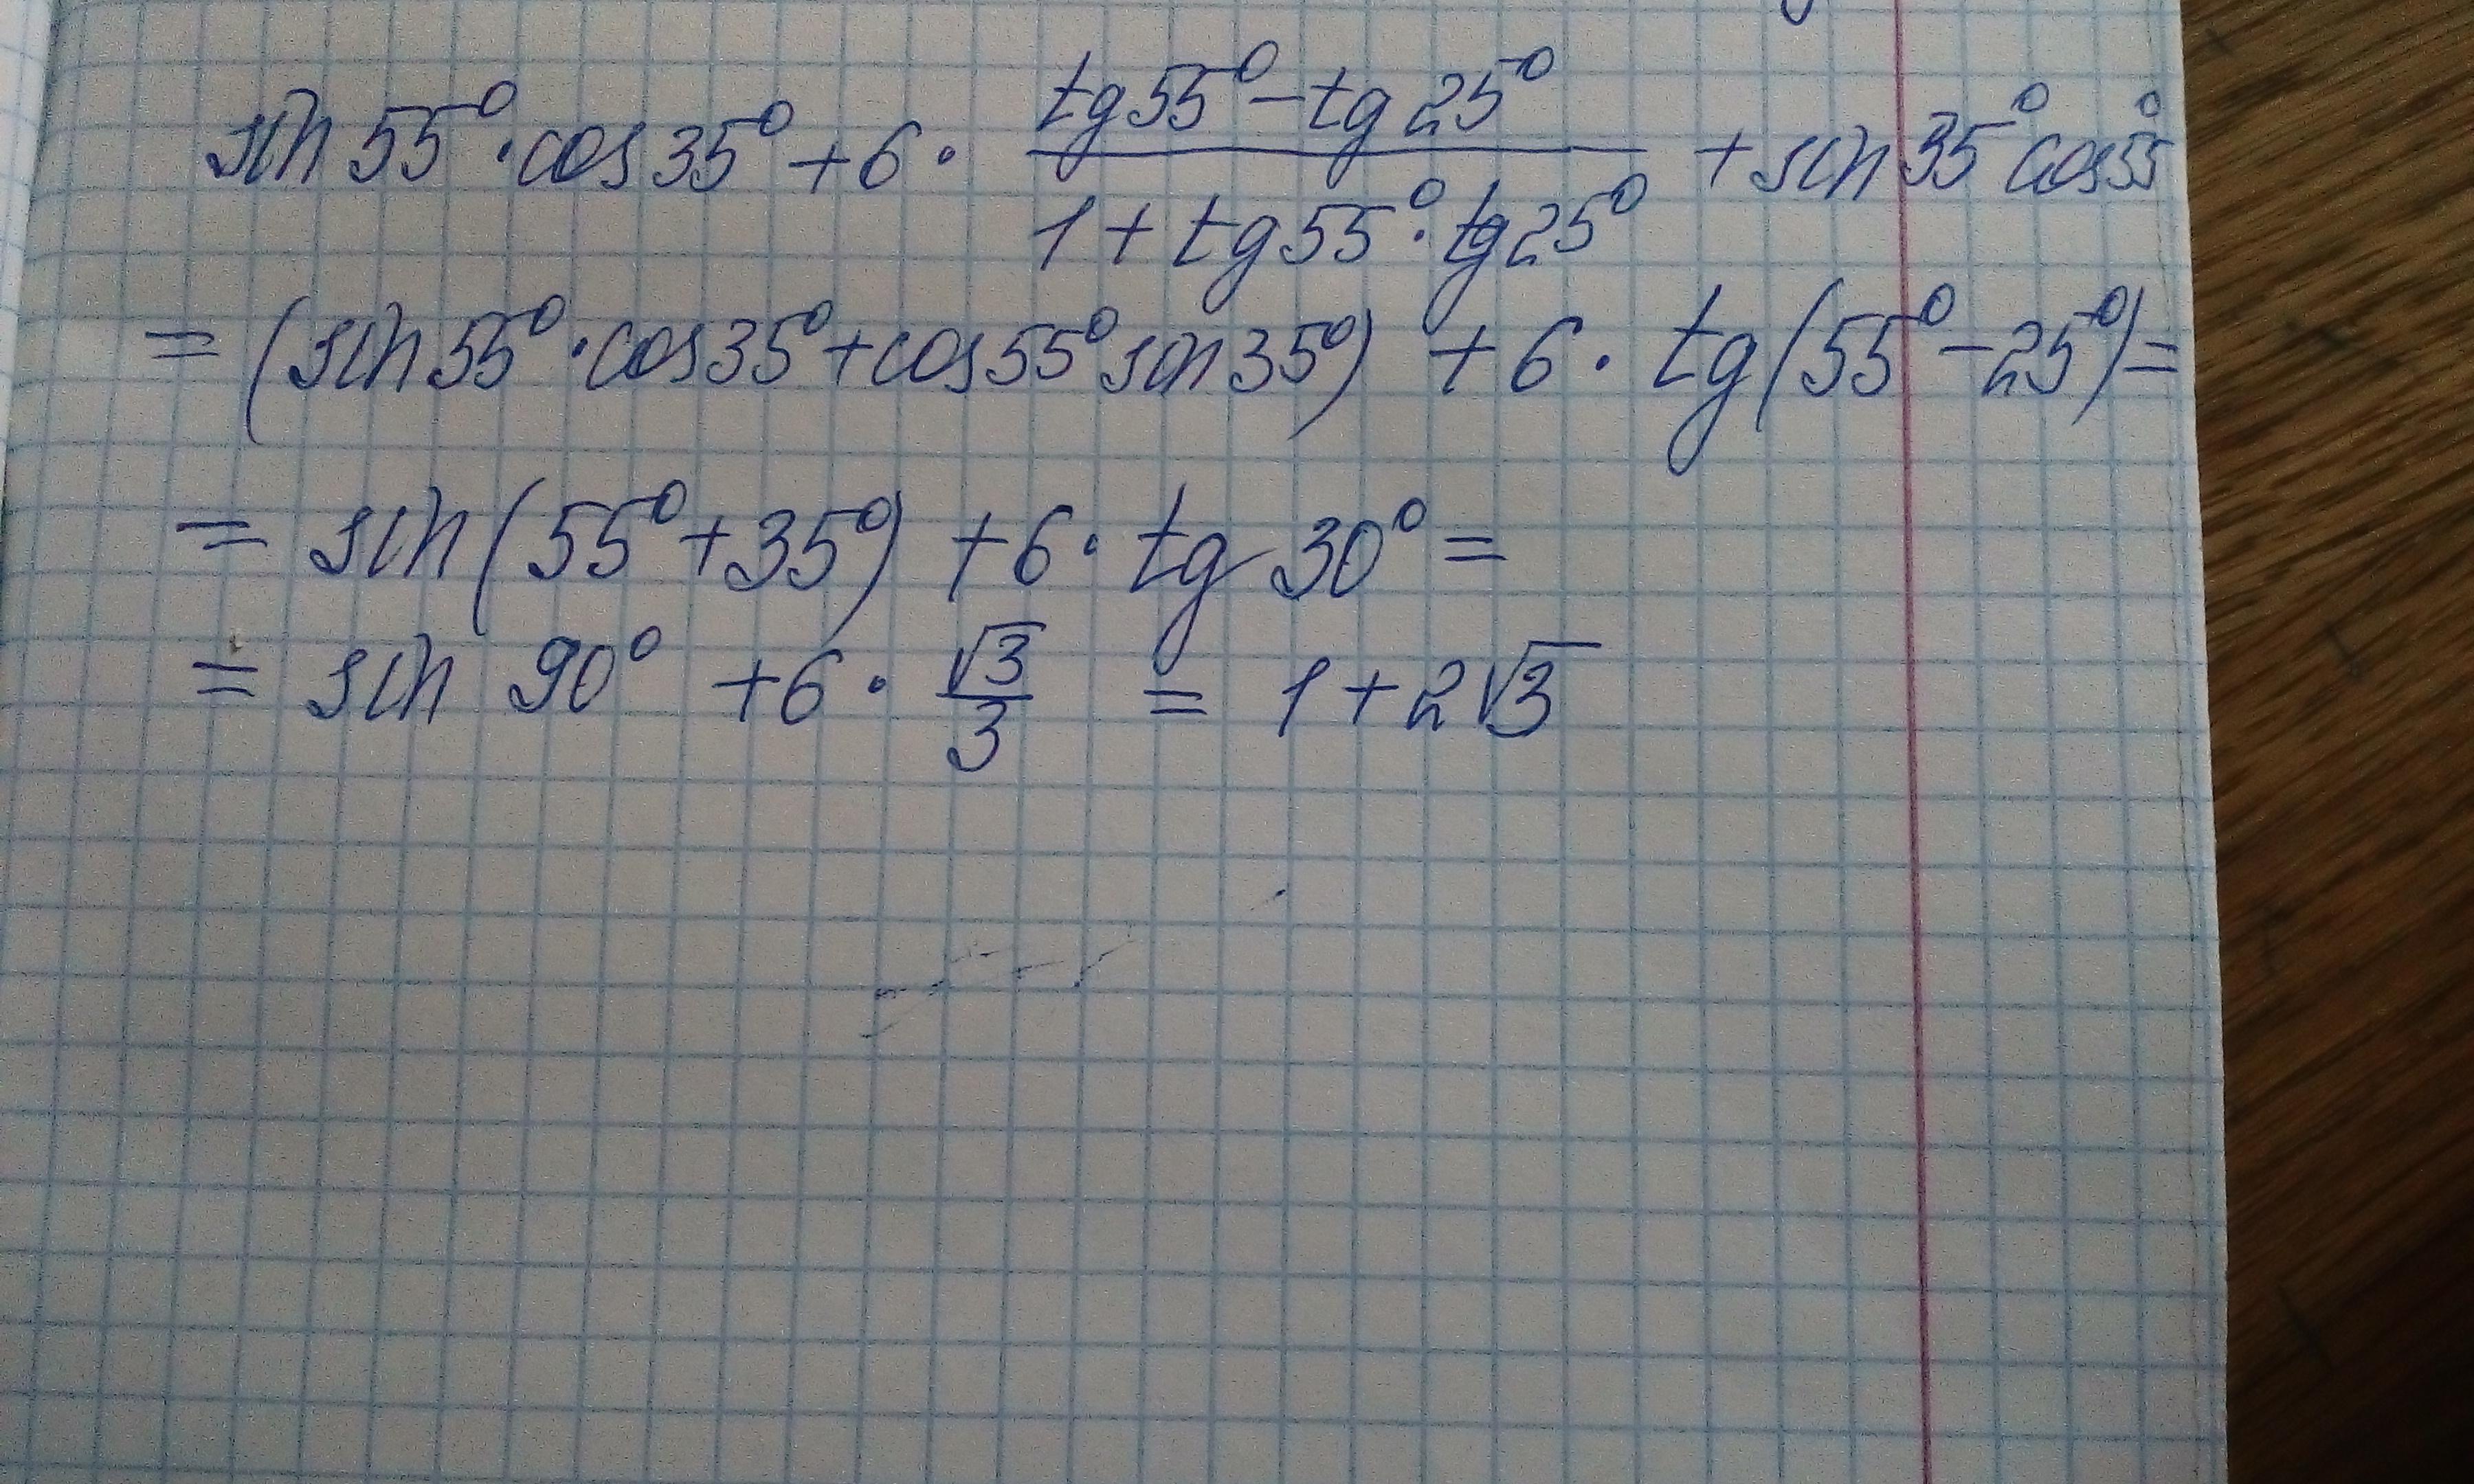 sin 55° · cos 35° + 6 · (tg 55° - tg 25°) / (1 + tg 55° · tg 25°) + sin 35° cos 55°
= (sin 55° · cos 35° + cos 55° sin 35°) + 6 · tg (55° - 25°) =
= sin (55° + 35°) + 6 · tg 30° =
= sin 90° + 6 · √3/3 = 1 + 2√3